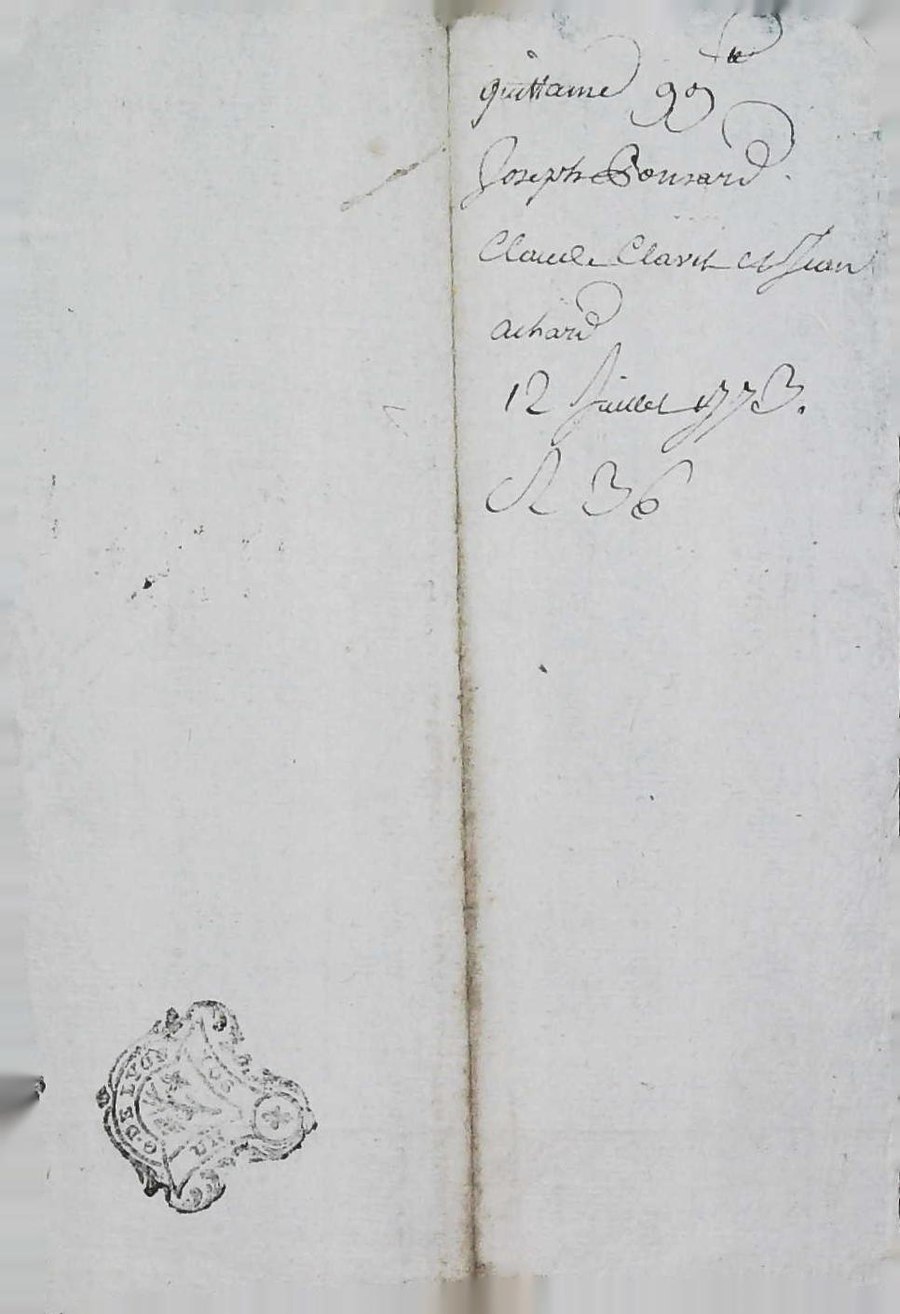 quittance 99 lt
Joseph Bonnard
Claude Claret et Jean
achard
12 Juillet 1773.
N 36
G. DE LYON
UN SOL